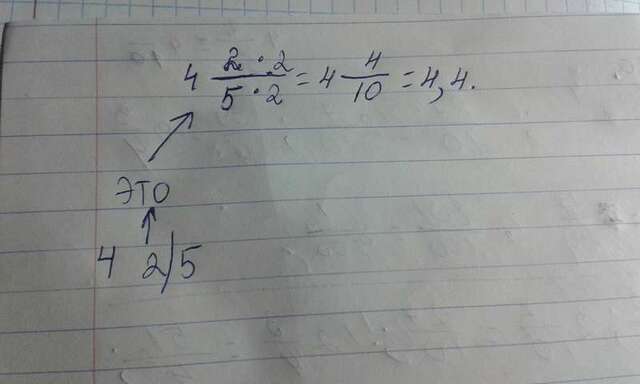 4 2·2/5·2 = 4 4/10 = 4,4.
ЭТО
4 2/5